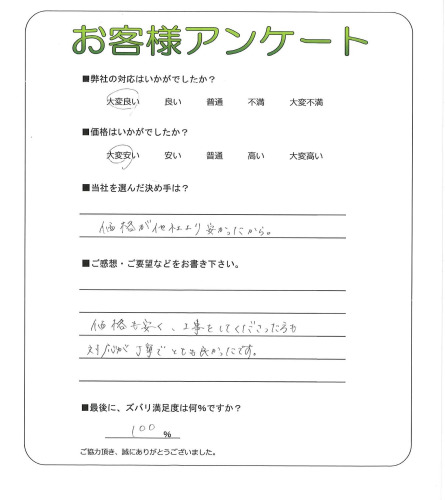 お客様アンケート
■弊社の対応はいかがでしたか？
大変良い 良い 普通 不満 大変不満
■価格はいかがでしたか？
大変安い 安い 普通 高い 大変高い
■当社を選んだ決め手は？
価格が他社より安かったから。
■ご感想・ご要望などをお書き下さい。
価格も安く、工事をしてくださった方も
対応が丁寧でとても良かったです。
■最後に、ズバリ満足度は何%ですか？
100 %
ご協力頂き、誠にありがとうございました。